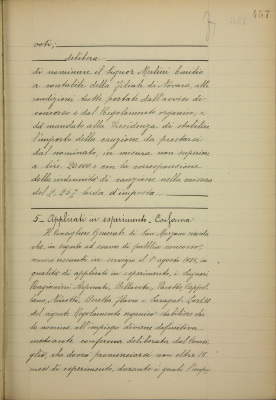 voti;
delibera
di nominare il Signor Merlini Emilio
a contabile della Filiale di Novara, alle
condizioni tutte portate dall'avviso di
concorso e dal Regolamento organico, e
dà mandato alla Presidenza di stabilire
l'importo della cauzione da prestarsi
dal nominato, in misura non superiore
a lire 20.000 e con la corresponsione
della indennità di cauzione nella misura
del 2,25% lorda d'imposta.
5- Applicati in esperimento. Conferma
Il Consigliere Generale di San Marzano ricorda
che, in seguito ad esame di pubblico concorso,
vennero assunti in servizio il 1° agosto 1925, in
qualità di applicati in esperimento, i signori
Ragionieri
del vigente Regolamento organico stabilisce che
la nomina all'impiego diviene definitiva
mediante conferma deliberata dal Consi-
glio, che dovrà pronunciarsi non oltre 18
mesi di esperimento, durante i quali l'impie-